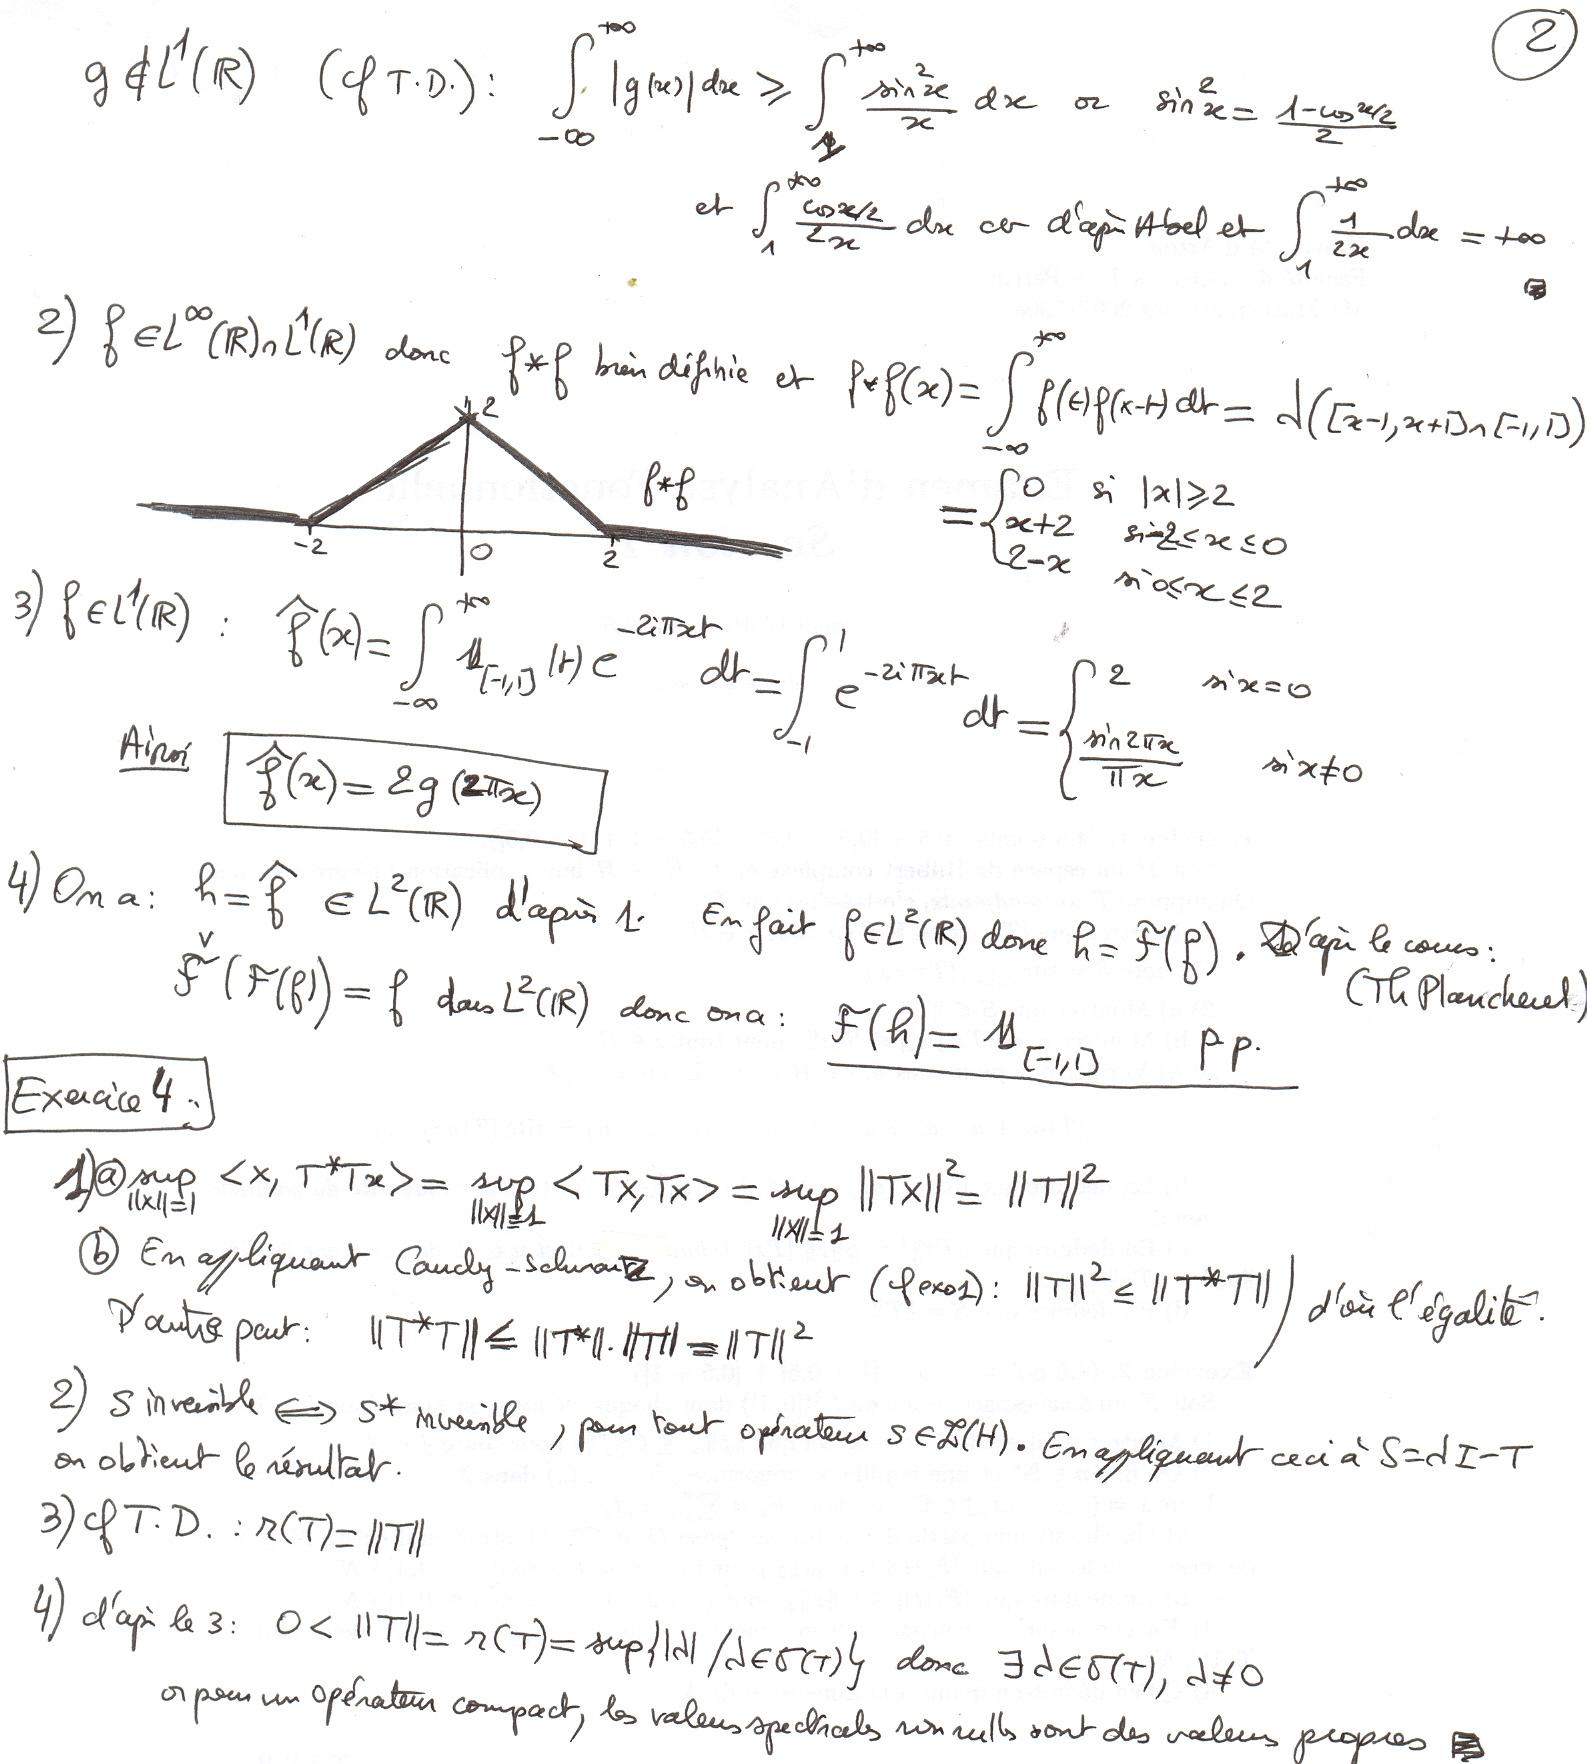 2
g ∉ L¹(ℝ) (cf T.D.) : ∫_{-∞}^{+∞} |g(x)| dx ≥ ∫_1^{+∞} sin²x/x dx or sin²x = (1-cos x/2)/2
et ∫_1^{+∞} (cos x/2)/(2x) dx cv d'après Abel et ∫_1^{+∞} 1/(2x) dx = +∞
2) f ∈ L^∞(ℝ) ∩ L¹(ℝ) donc f*f bien définie et f*f(x) = ∫_{-∞}^{+∞} f(t) f(x-t) dt = λ([x-1, x+1] ∩ [-1, 1])
= { 0 si |x| ≥ 2
x+2 si -2 ≤ x ≤ 0
2-x si 0 ≤ x ≤ 2
2
f*f
-2 0 2
3) f ∈ L¹(ℝ) : f̂(x) = ∫_{-∞}^{+∞} 𝟙_{[-1,1]}(t) e^{-2iπxt} dt = ∫_{-1}^{1} e^{-2iπxt} dt = { 2 si x=0
sin 2πx/πx si x≠0
Ainsi f̂(x) = 2g(2πx)
4) On a : h = f̂ ∈ L²(ℝ) d'après 1. En fait f ∈ L²(ℝ) donc h = F(f). D'après le cours :
(Th Plancherel)
F̌(F(f)) = f dans L²(ℝ) donc on a : F(h) = 𝟙_{[-1,1]} pp.
Exercice 4 :
1) ⓐ sup_{||x||=1} <x, T*Tx> = sup_{||x||=1} <Tx, Tx> = sup_{||x||=1} ||Tx||² = ||T||²
ⓑ En appliquant Cauchy-Schwarz, on obtient (cf exo1) : ||T||² ≤ ||T*T||
D'autre part : ||T*T|| ≤ ||T*||.||T|| = ||T||² ) d'où l'égalité.
2) S inversible ⟺ S* inversible, pour tout opérateur S ∈ ℒ(H). En appliquant ceci à S = λI - T
on obtient le résultat.
3) cf T.D. : r(T) = ||T||
4) d'après le 3 : 0 < ||T|| = r(T) = sup{|λ| / λ ∈ σ(T)} donc ∃ λ ∈ σ(T), λ ≠ 0
or pour un opérateur compact, les valeurs spectrales non nulles sont des valeurs propres